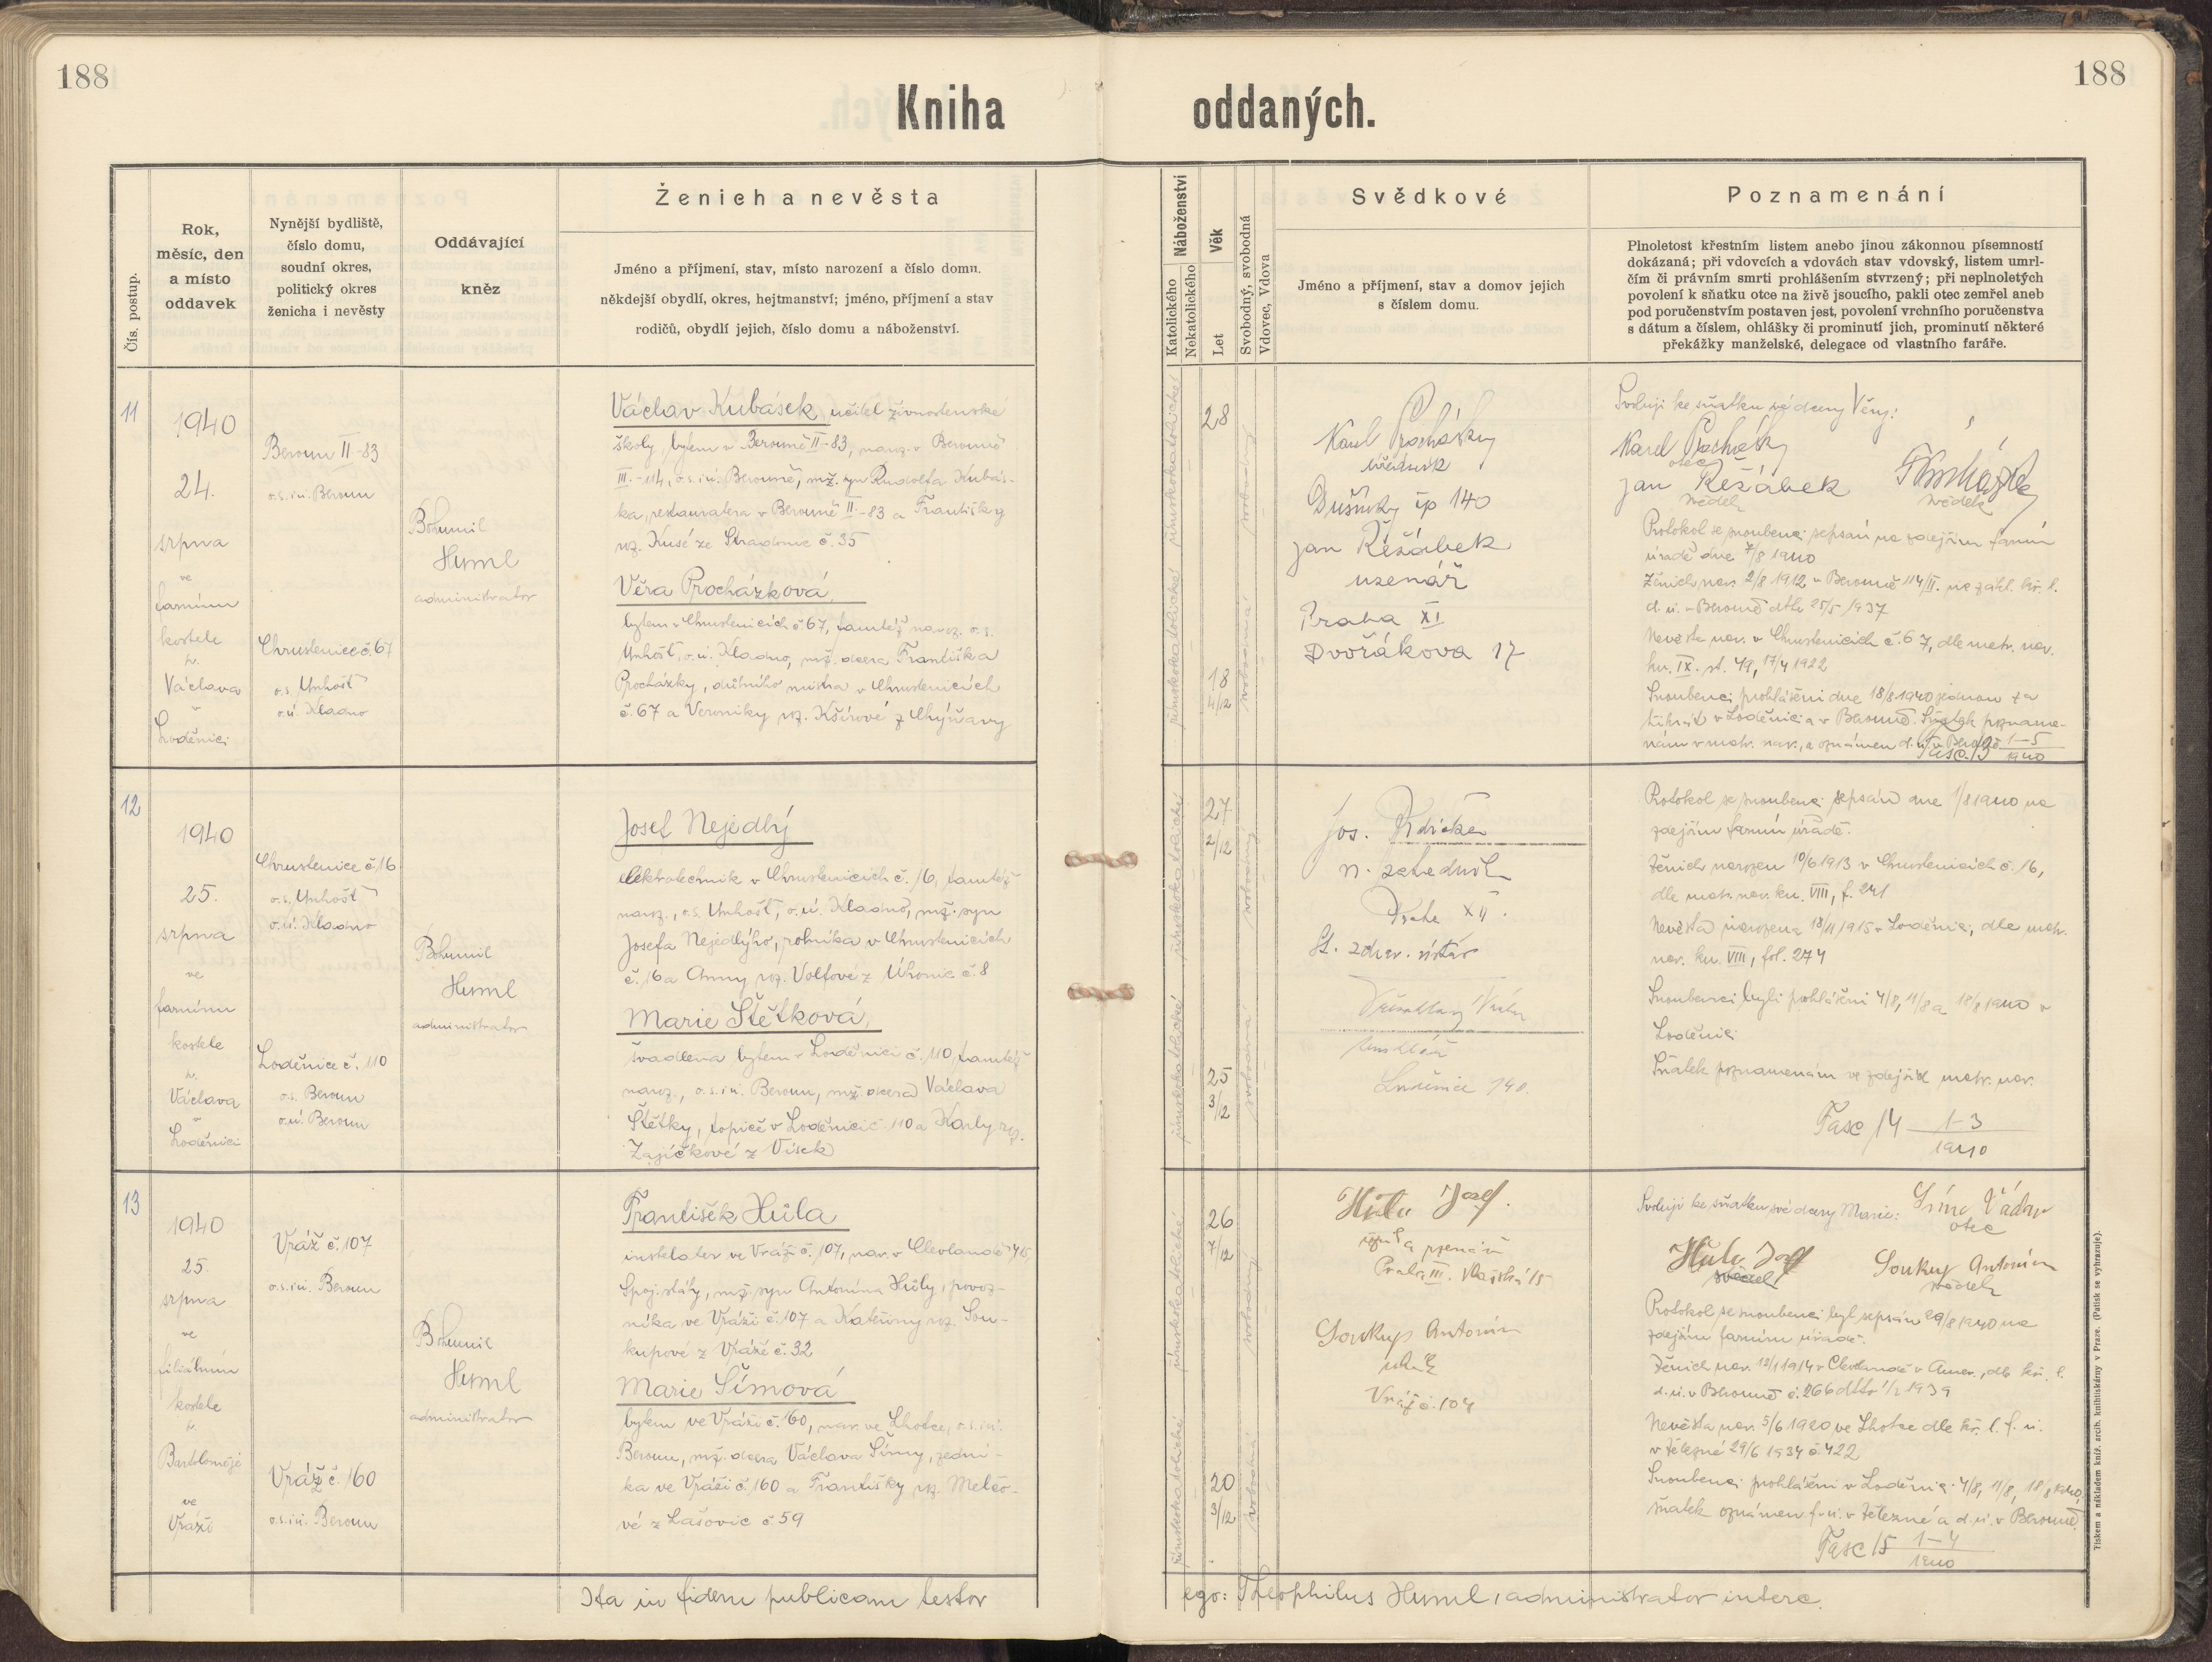 188
188
Kniha
oddaných.
Čís. postup.
Rok,
měsíc, den
a místo
oddavek
Nynější bydliště,
číslo domu,
soudní okres,
politický okres
ženicha i nevěsty
Oddávající
kněz
Ženich a nevěsta
Jméno a příjmení, stav, místo narození a číslo domu.
někdejší obydlí, okres, hejtmanství; jméno, příjmení a stav
rodičů, obydlí jejich, číslo domu a náboženství.
Náboženství
Katolického
Nekatolického
Věk
Let
Svobodný, svobodná
Vdovec, Vdova
Svědkové
Jméno a příjmení, stav a domov jejich
s číslem domu.
Poznamenání
Plnoletost křestním listem anebo jinou zákonnou písemností
dokázaná; při vdovcích a vdovách stav vdovský, listem umrl-
čím či právním smrti prohlášením stvrzený; při neplnoletých
povolení k sňatku otce na živě jsoucího, pakli otec zemřel aneb
pod poručenstvím postaven jest, povolení vrchního poručenstva
s dátum a číslem, ohlášky či prominutí jich, prominutí některé
překážky manželské, delegace od vlastního faráře.
11
1940
24.
srpna
ve
farním
kostele
sv.
Václava
v
Loděnici
Beroun II-83
o.s. i ú. Beroun
Chrustenice č. 67
o.s. Unhošť
o.ú. Kladno
Bohumil
Huml
administrator
Václav Kubásek, učitel živnostenské
školy, bytem v Berouně II-83, naroz. v Berouně
III.-114, o.s. i ú. Berouně, mž. syn Rudolfa Kubás-
ka, restauratera v Berouně II-83 a Františky
roz. Kusé ze Stradonic č. 35
Věra Procházková,
bytem v Chrustenicích č 67, tamtéž naroz. o.s.
Unhošť, o.ú. Kladno, mž. dcera Františka
Procházky, důlního mistra v Chrustenicích
č. 67 a Veroniky roz. Kšírové z Chýňavy
římskokatolické
římskokatolické
28
18
4/12
svobodný
svobodná
Karel Procházky
úředník
Dušníky čp 140
Jan Řešábek
uzenář
Praha XI
Dvořákova 17
Svoluji ke sňatku své dcery Věry:
Karel Procházky
otec
Jan Řešábek
svědek
svědek
Protokol se snoubenci sepsán na zdejším farním
úřadě dne 7/8 1940
Ženich nar. 2/8 1912 v Berouně 114/II. na zákl. kř. l.
d. ú. v Berouně dtto 25/5 1937
Nevěsta nar. v Chrustenicích č. 67, dle matr. nar.
kn. IX. st. 49, 17/4 1922
Snoubenci prohlášeni dne 18/8 1940 jednou za
třikrát v Loděnici a v Berouně. Sňatek pozname-
nán v matr. nar., a oznámen d. ú. v Berouně
Fasc. 13 1-5
1940
12
1940
25.
srpna
ve
farním
kostele
sv.
Václava
v
Loděnici
Chrustenice č. 16
o.s. Unhošť
o.ú. Kladno
Loděnice č. 110
o.s. Beroun
o.ú. Beroun
Bohumil
Huml
administrator
Josef Nejedlý
elektrotechnik v Chrustenicích č. 16, tamtéž
naroz., o.s. Unhošť, o.ú. Kladno, mž. syn
Josefa Nejedlýho, rolníka v Chrustenicích
č. 16 a Anny roz. Volfové z Úhonic č. 8
Marie Štětková,
švadlena bytem v Loděnici č. 110, tamtéž
naroz., o.s. i ú. Beroun, mž. dcera Václava
Štětky, topiče v Loděnici č. 110 a Karly roz.
Zajíčkové z Vísek
římskokatolické
římskokatolické
27
2/12
25
3/12
svobodný
svobodná
Jos.
Praha XII.
St. zdrav. ústav
Loděnice 140.
Protokol se snoubenci sepsán dne 1/8 1940 na
zdejším farním úřadě.
Ženich narozen 10/6 1913 v Chrustenicích č. 16,
dle matr. nar. kn. VIII, f. 241
Nevěsta narozena 18/11 1915 v Loděnici, dle matr.
nar. kn. VIII, fol. 274
Snoubenci byli prohlášeni 4/8, 11/8 a 18/8 1940 v
Loděnici
Sňatek poznamenán ve zdejší matr. nar.
Fasc 14 1-3
1940
13
1940
25.
srpna
ve
filiálním
kostele
sv.
Bartoloměje
ve
Vráži
Vráž č. 107
o.s. i ú. Beroun
Vráž č. 160
o.s. i ú. Beroun
Bohumil
Huml
administrator
František Hůla
instalater ve Vráži č. 107, nar. v Clevelandě
Spoj. státy, mž. syn Antonína Hůly, povoz-
níka ve Vráži č. 107 a Kateřiny roz. Sou-
kupové z Vráže č. 32
Marie Šímová
bytem ve Vráži č. 160, nar. ve Lhotce, o.s. i ú.
Beroun, mž. dcera Václava Šímy, zední-
ka ve Vráži č. 160 a Františky roz Melčo-
vé z Lašovic č 59
římskokatolické
římskokatolické
26
7/12
20
3/12
svobodný
svobodná
Hůla Josef.
Praha III. Vlašská 15
Soukup Antonín
Vráž č. 104
Svoluji ke sňatku své dcery Marie: Šíma Václav
otec
Hůla Josef
svědek
Soukup Antonín
svědek
Protokol se snoubenci byl sepsán 29/8 1940 na
zdejším farním úřadě.
Ženich nar. 12/1 1914 v Clevelandě v Amer., dle kř. l.
d. ú. v Berouně č. 266 dtto 1/2 1939
Nevěsta nar. 5/6 1920 ve Lhotce dle kř. l. f. ú.
v Železné 29/6 1934 č 422
Snoubenci prohlášeni v Loděnici 4/8, 11/8, 18/8 1940,
sňatek oznámen f. ú. v Železné a d. ú. v Berouně.
Fasc 15 1-4
1940
Ita in fidem publicam testor
ego: Theophilus Huml, administrator interc.
Tiskem a nákladem kníž. arcib. knihtiskárny v Praze. (Patisk se vyhrazuje).